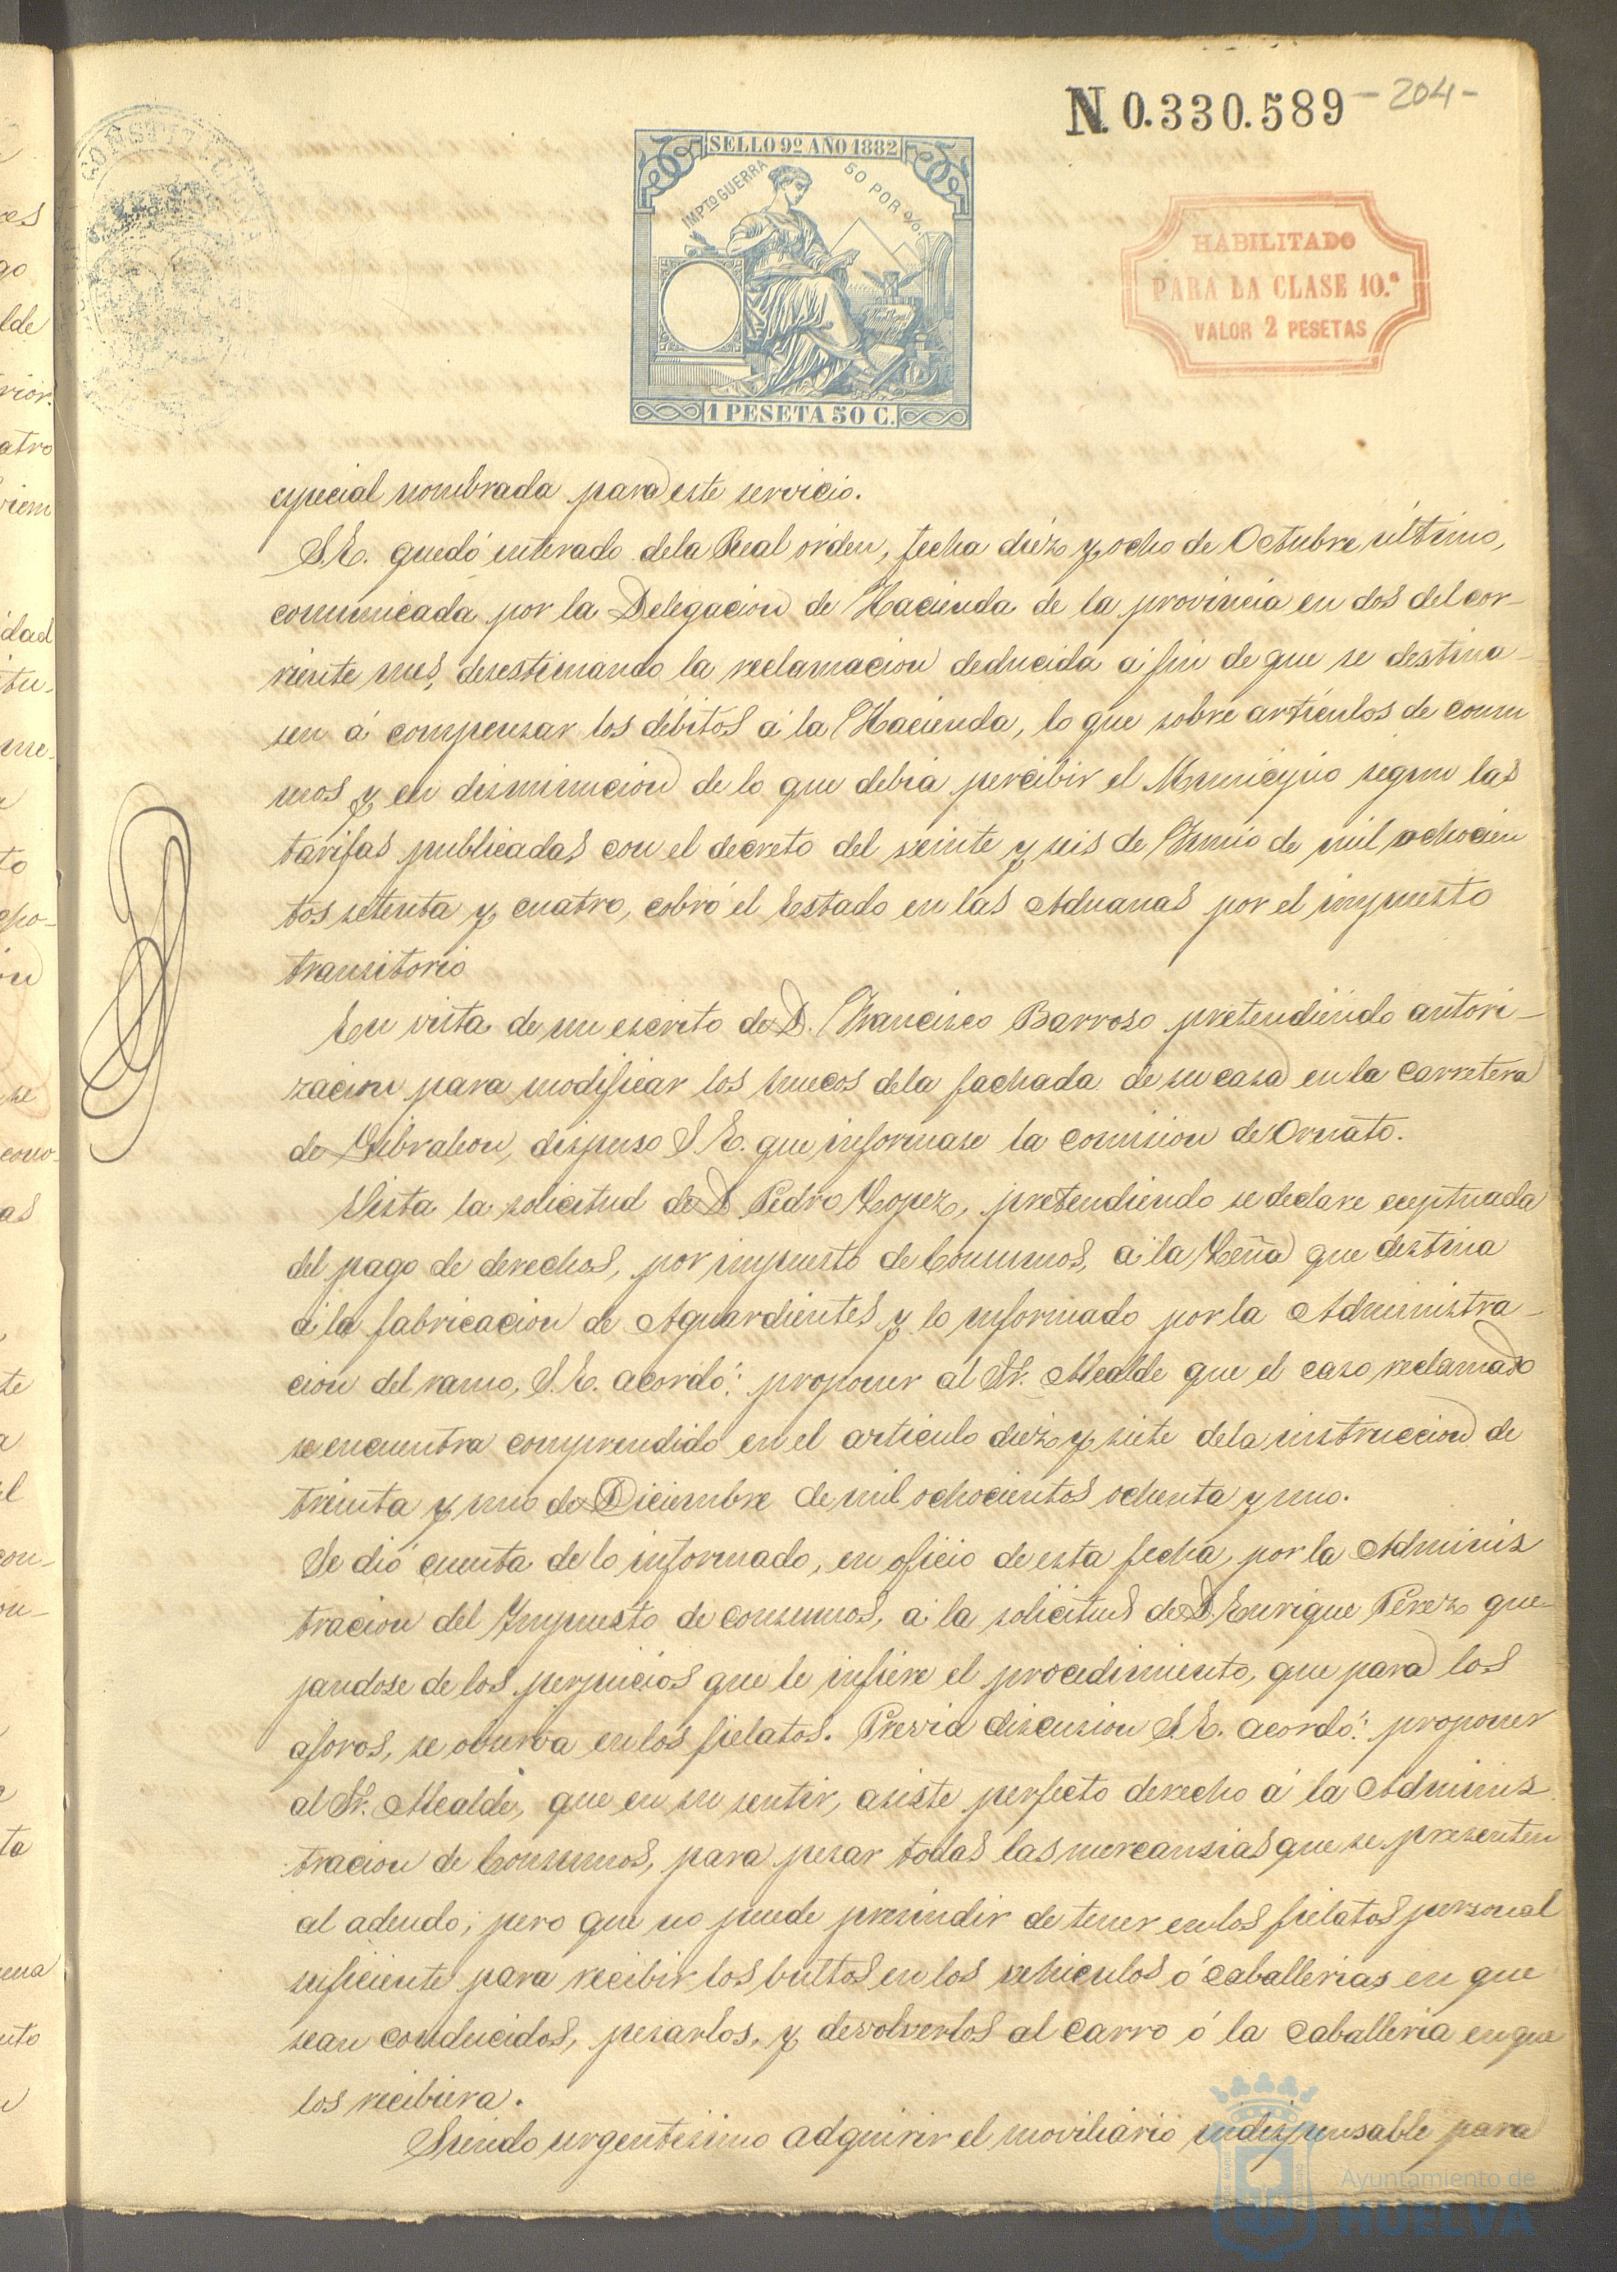 N. 0.330.589 - 204 -
SELLO 9º AÑO 1882
IMPTO GUERRA 50 POR %
1 PESETA 50 C.
HABILITADO
PARA LA CLASE 10.ª
VALOR 2 PESETAS
especial nombrada para este servicio.
S.E. quedó enterado dela Real orden, fecha diéz y ocho de Octubre último,
comunicada por la Delegacion de Hacienda de la provincia en dos del cor-
riente mes, desestimando la reclamacion deducida á fin de que se destina-
sen á compensar los débitos á la Hacienda, lo que sobre artículos de consu
mos y en disminucion de lo que debia percibir el Municipio segun las
tarifas publicadas con el decreto del veinte y seis de Junio de mil ochocien
tos setenta y cuatro, cobró el Estado en las Aduanas por el impuesto
transitorio
En vista de un escrito de D. Francisco Barroso pretendiendo autori-
zacion para modificar los huecos dela fachada de su casa en la carretera
de Gibraleon, dispuso S.E. que informase la comision de Ornato.
Vista la solicitud de D. Pedro Lopez, pretendiendo se declare eceptuada
del pago de derechos, por impuesto de Consumos, á la Leña que destina
á la fabricacion de Aguardientes y lo informado por la Administra-
cion del ramo, S.E. acordó: proponer al Sr. Alcalde que el caso reclamado
se encuentra comprendido en el artículo diez y siete dela instruccion de
treinta y uno de Diciembre de mil ochocientos ochenta y uno.
Se dió cuenta de lo informado, en oficio de esta fecha, por la Adminis
tracion del Impuesto de consumos, á la solicitud de D. Enrique Pérez que-
jandose de los perjuicios que le infiere el procedimiento, que para los
aforos, se observa en los fielatos. Previa discusion S.E. acordó: proponer
al Sr. Alcalde, que en su sentir, asiste perfecto derecho á la Adminis
tracion de Consumos, para pesar todas las mercansias que se presenten
al adeudo; pero que no puede presindir de tener en los fielatos personal
suficiente para recibir los bultos en los vehiculos ó caballerias en que
sean conducidos, pesarlos, y devolverlos al carro ó la caballeria en que
los recibiera.
Siendo urgentisimo adquirir el moviliário indispensable para
Ayuntamiento de
HUELVA